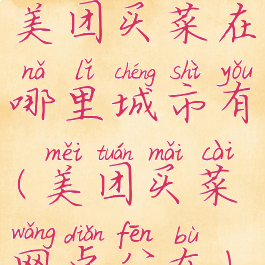 美团买菜在
nǎ lǐ chéng shì yǒu
哪里城市有
měi tuán mǎi cài
（美团买菜
wǎng diǎn fēn bù
网点分布）